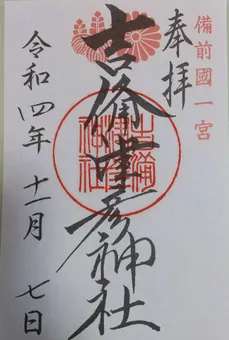 備前國一宮
奉拝
吉備津彦神社
吉備津彦神社
令和四年十一月七日